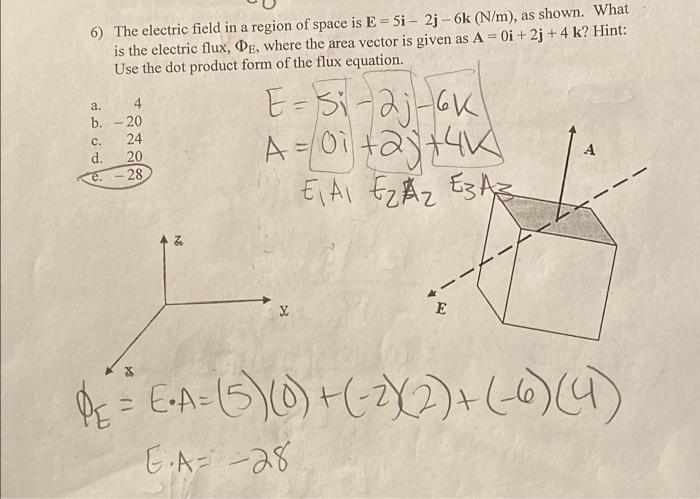 6) The electric field in a region of space is E = 5i – 2j – 6k (N/m), as shown. What
is the electric flux, ΦE, where the area vector is given as A = 0i + 2j + 4 k? Hint:
Use the dot product form of the flux equation.
a. 4
b. – 20
c. 24
d. 20
e. – 28
E = 5i -2j -6K
A = 0i +2j +4K
E1A1 E2A2 E3A3
A
Z
E
Y
X
ΦE = E·A = (5)(0) + (-2)(2) + (-6)(4)
E·A = -28